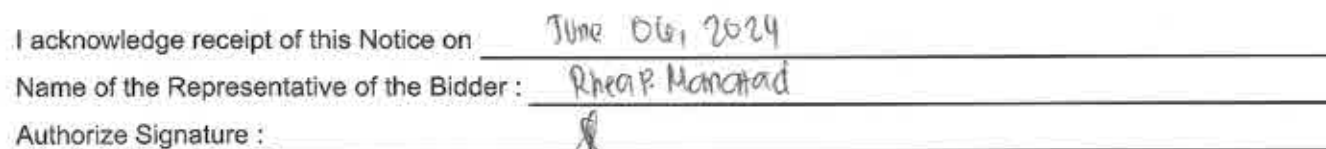 I acknowledge receipt of this Notice on June 06, 2024
Name of the Representative of the Bidder : Rhea P.
Authorize Signature :